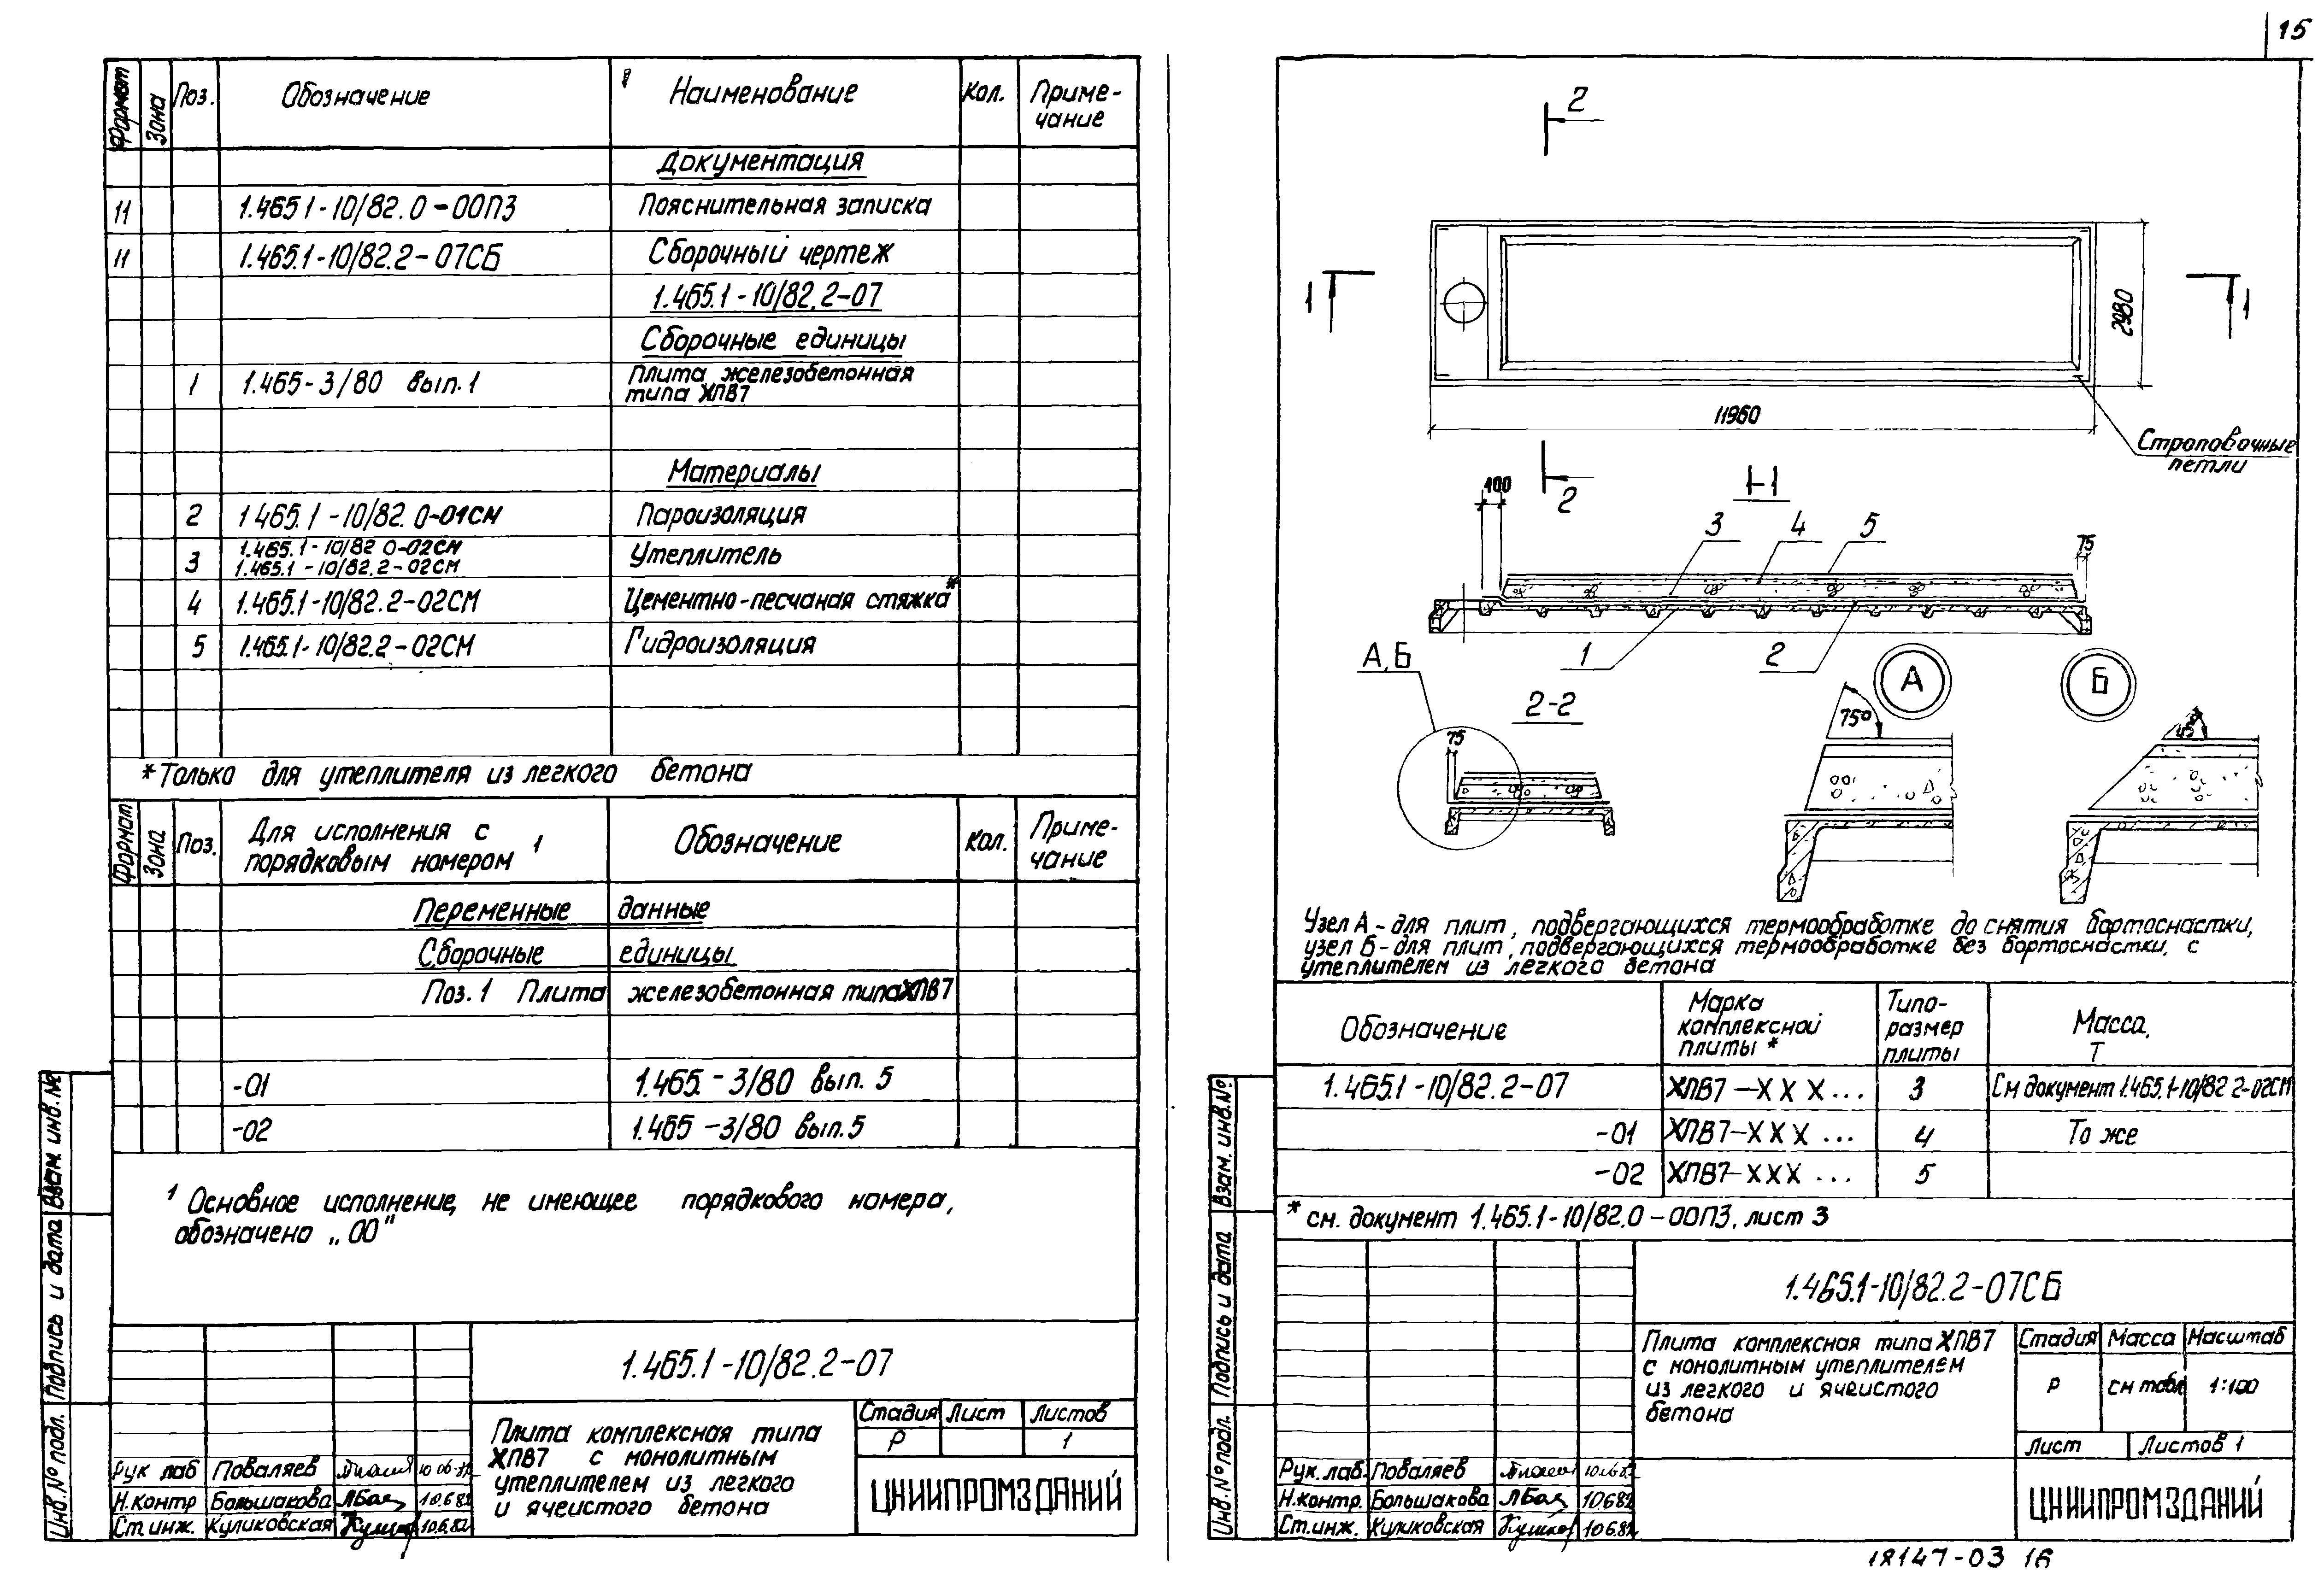 15
Формат Зона Поз. Обозначение Наименование Кол. Приме-
чание
Документация
11 1.465 1-10/82.0-00ПЗ Пояснительная записка
11 1.465.1-10/82.2-07СБ Сборочный чертеж
1.465.1-10/82.2-07
Сборочные единицы
1 1.465-3/80 вып.1 Плита железобетонная
типа ХПВ7
Материалы
2 1 465.1-10/82.0-01СМ Пароизоляция
3 1.465.1-10/82 0-02СМ Утеплитель
1.465.1-10/82.2-02СМ
4 1.465.1-10/82.2-02СМ Цементно-песчаная стяжка*
5 1.465.1-10/82.2-02СМ Гидроизоляция
*Только для утеплителя из легкого бетона
Формат Зона Поз. Для исполнения с
порядковым номером 1 Обозначение Кол. Приме-
чание
Переменные данные
Сборочные единицы
Поз.1 Плита железобетонная типа ХПВ7
-01 1.465.-3/80 вып. 5
-02 1.465-3/80 вып.5
1 Основное исполнение, не имеющее порядкового номера,
обозначено „00"
Взам. инв.№
Подпись и дата
Инв.№ подл.
1.465.1-10/82.2-07
Плита комплексная типа
ХПВ7 с монолитным
утеплителем из легкого
и ячеистого бетона
Стадия Лист Листов
Р 1
ЦНИИПРОМЗДАНИЙ
Рук лаб Поваляев 10 06.82
Н.контр Большакова 10.6.82
Ст.инж. Куликовская 10.6.82
2
1 1
2980
11960
Строповочные
петли
2
1-1
100 3 4 5 75
1 2
А,Б
2-2
75
А
75°
Б
45°
Узел А-для плит, подвергающихся термообработке до снятия бортоснастки,
узел Б-для плит, подвергающихся термообработке без бортоснастки, с
утеплителем из легкого бетона
Обозначение Марка
комплексной
плиты * Типо-
размер
плиты Масса,
Т
1.465.1-10/82.2-07 ХПВ7-ХХХ... 3 См документ 1.465.1-10/82 2-02СМ
-01 ХПВ7-ХХХ... 4 То же
-02 ХПВ7-ХХХ... 5
* см. документ 1.465.1-10/82.0-00ПЗ, лист 3
Взам. инв.№
Подпись и дата
Инв.№ подл.
1.465.1-10/82.2-07СБ
Плита комплексная типа ХПВ7
с монолитным утеплителем
из легкого и ячеистого
бетона
Стадия Масса Масштаб
Р см табл 1:100
Лист Листов 1
ЦНИИПРОМЗДАНИЙ
Рук.лаб. Поваляев 10.06.82
Н.контр. Большакова 10.6.82
Ст.инж. Куликовская 10.6.82
18147-03 16